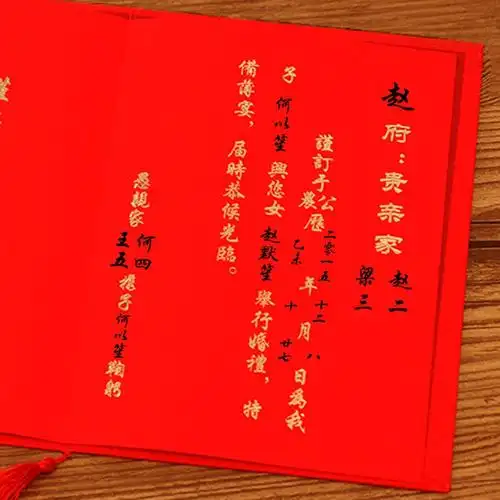 赵府：贵亲家 赵二
梁三
謹訂于公曆 二零一五 年 十二 月 八 日為我
農 乙未 十 廿七
子 何以笙 與您女 赵默笙 舉行婚禮，特
備薄宴，届時恭候光臨。
愚親家 何四
王五 携子何以笙鞠躬